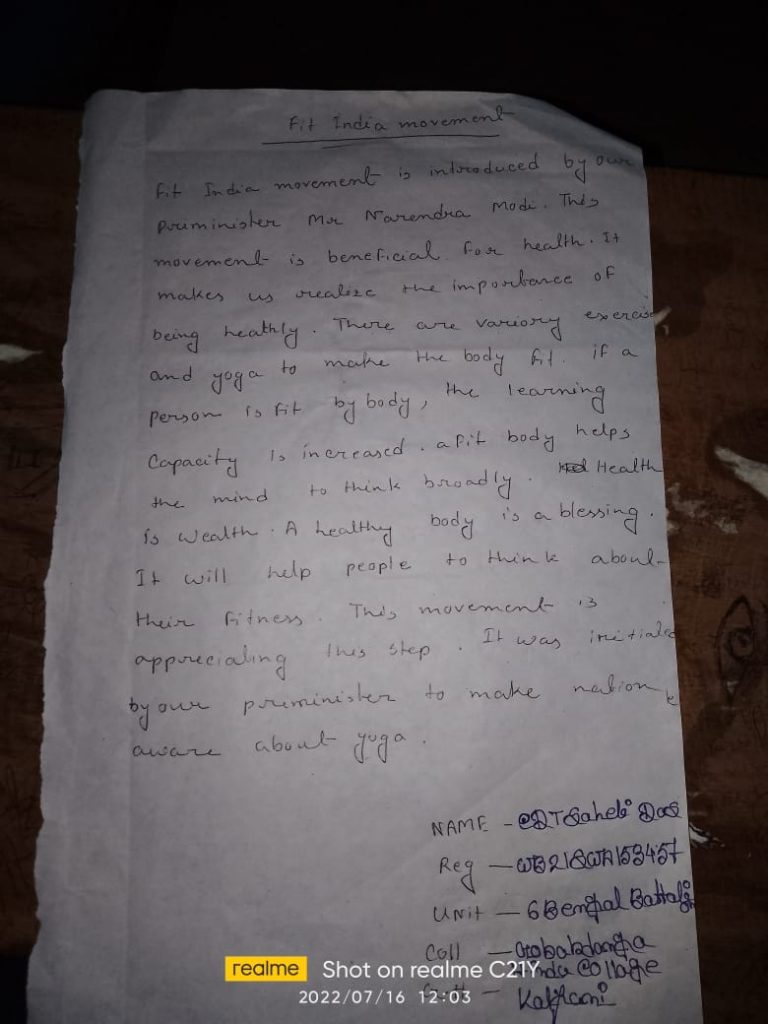 Fit India movement
Fit India movement is introduced by our
priminister Mr Narendra Modi. This
movement is beneficial for health. It
makes us realize the importance of
being heathly. There are variory exercise
and yoga to make the body fit. if a
person is fit by body, the learning
Capacity is increased. a fit body helps
the mind to think broadly. Health
is wealth. A healthy body is a blessing.
It will help people to think about
their fitness. This movement is
appreciating this step. It was initiated
by our preminister to make nation
aware about yoga.
NAME - CDT Saheli Das
Reg - WB21SWA153457
Unit - 6 Bengal
Coll - Gobardanga
Hindu Collage
realme Shot on realme C21Y
2022/07/16 12:03